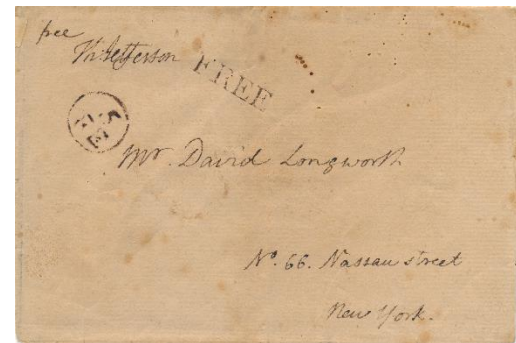 free
Th: Jefferson FREE
Mr. David Longworth
No. 66. Nassau street
New York.